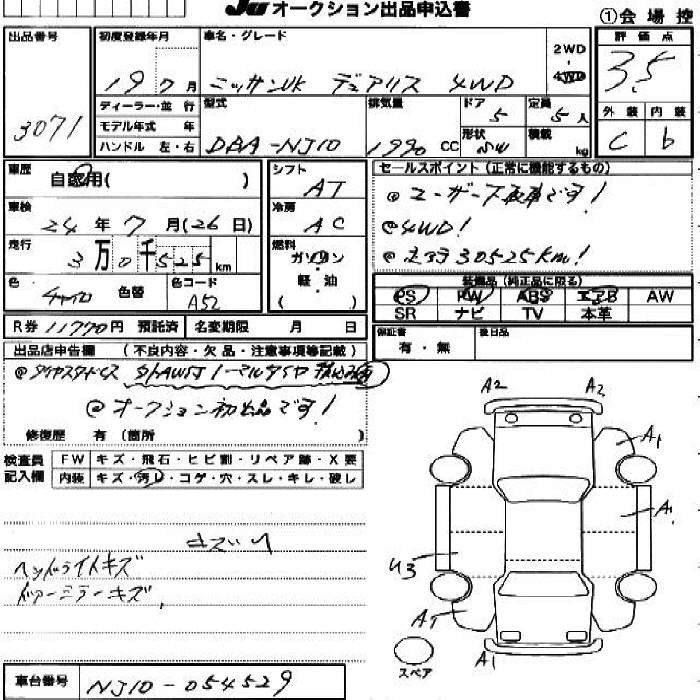 JU オークション出品申込書
①会場控
出品番号
3071
初度登録年月
19 7月
車名・グレード
ニッサンUK デュアリス 4WD
2WD
・
4WD
評価点
3.5
外装 内装
C b
ディーラー・並行
モデル年式 年
ハンドル 左・右
型式
DBA-NJ10
排気量
1990 CC
ドア
5
定員
5人
形状
SW
積載
kg
車歴
自家用( )
車検
24年7月(26日)
走行
3万0千525km
色
色替
色コード
A52
シフト
AT
冷房
AC
燃料
ガソリン
・
軽油
( )
セールスポイント(正常に機能するもの)
@ユーザー買取車です!
@4WD!
@走行30525km!
装備品(純正品に限る)
PS PW ABS エアB AW
SR ナビ TV 本革
R券 11770円 預託済 名変期限 月 日
保証書
有・無
後日品
出品店申告欄 (不良内容・欠品・注意事項等記載)
@オークション初出品です!
修復歴 有(箇所 )
検査員
記入欄
FW キズ・飛石・ヒビ割・リペア跡・X要
内装 キズ・汚レ・コゲ・穴・スレ・キレ・破レ
キズ
ヘッドライトキズ
ドアーミラーキズ
A2 A2
A1
A1
U3
A1
A1
スペア
車台番号
NJ10-054529